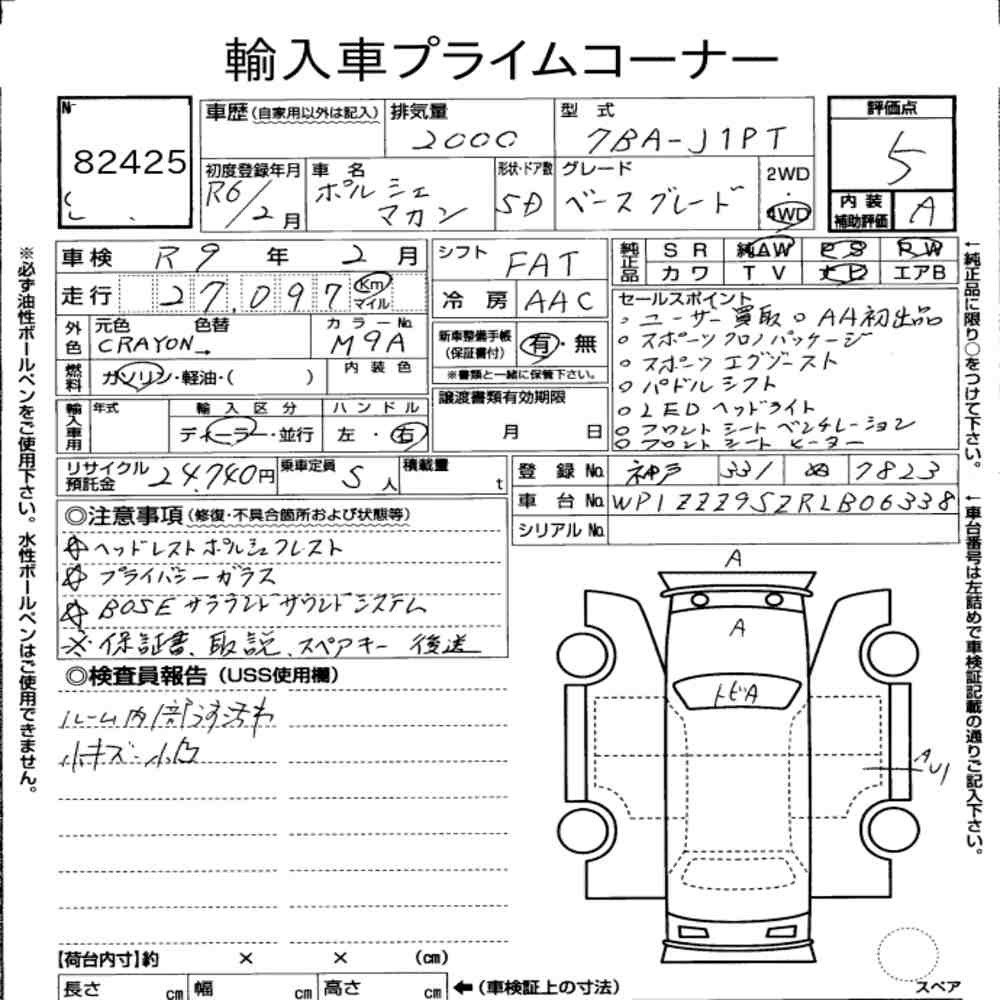 輸入車プライムコーナー
№ 82425
車歴(自家用以外は記入) 排気量 2000 型式 7BA-J1PT
評価点 5
内装補助評価 A
初度登録年月 R6/2月 車名 ポルシェ マカン 形状・ドア数 5D グレード ベースグレード 2WD・4WD
車検 R9年2月 シフト FAT
走行 27,097 Km マイル 冷房 AAC
純正品 SR 純AW PS PW
カワ TV ナビ エアB
外色 元色 CRAYON 色替 カラーNo. M9A
新車整備手帳(保証書付) 有・無
※書類と一緒に保管下さい。
燃料 ガソリン・軽油・( ) 内装色
譲渡書類有効期限 月 日
輸入車用 年式 輸入区分 ディーラー・並行 ハンドル 左・右
セールスポイント
○ユーザー買取 ○AA初出品
○スポーツクロノパッケージ
○スポーツエグゾースト
○パドルシフト
○LEDヘッドライト
○フロントシートベンチレーション
○フロントシートヒーター
リサイクル預託金 24,740円 乗車定員 5人 積載量 t
登録No. 神戸 331 ぬ 7823
車台No. WP1ZZZ95ZRLB06338
シリアルNo.
◎注意事項(修復・不具合箇所および状態等)
☆ヘッドレストポルシェクレスト
☆プライバシーガラス
☆BOSEサラウンドサウンドシステム
※保証書、取説、スペアキー 後送
◎検査員報告(USS使用欄)
ルーム内1部ヨゴレ
小キズ・小凹
A
A
トビA
A U1
スペア
【荷台内寸】約 × × (cm)
長さ cm 幅 cm 高さ cm ←(車検証上の寸法)
※必ず油性ボールペンをご使用下さい。水性ボールペンはご使用できません。
←純正品に限り○をつけて下さい。
←車台番号は左詰めで車検証記載の通りご記入下さい。